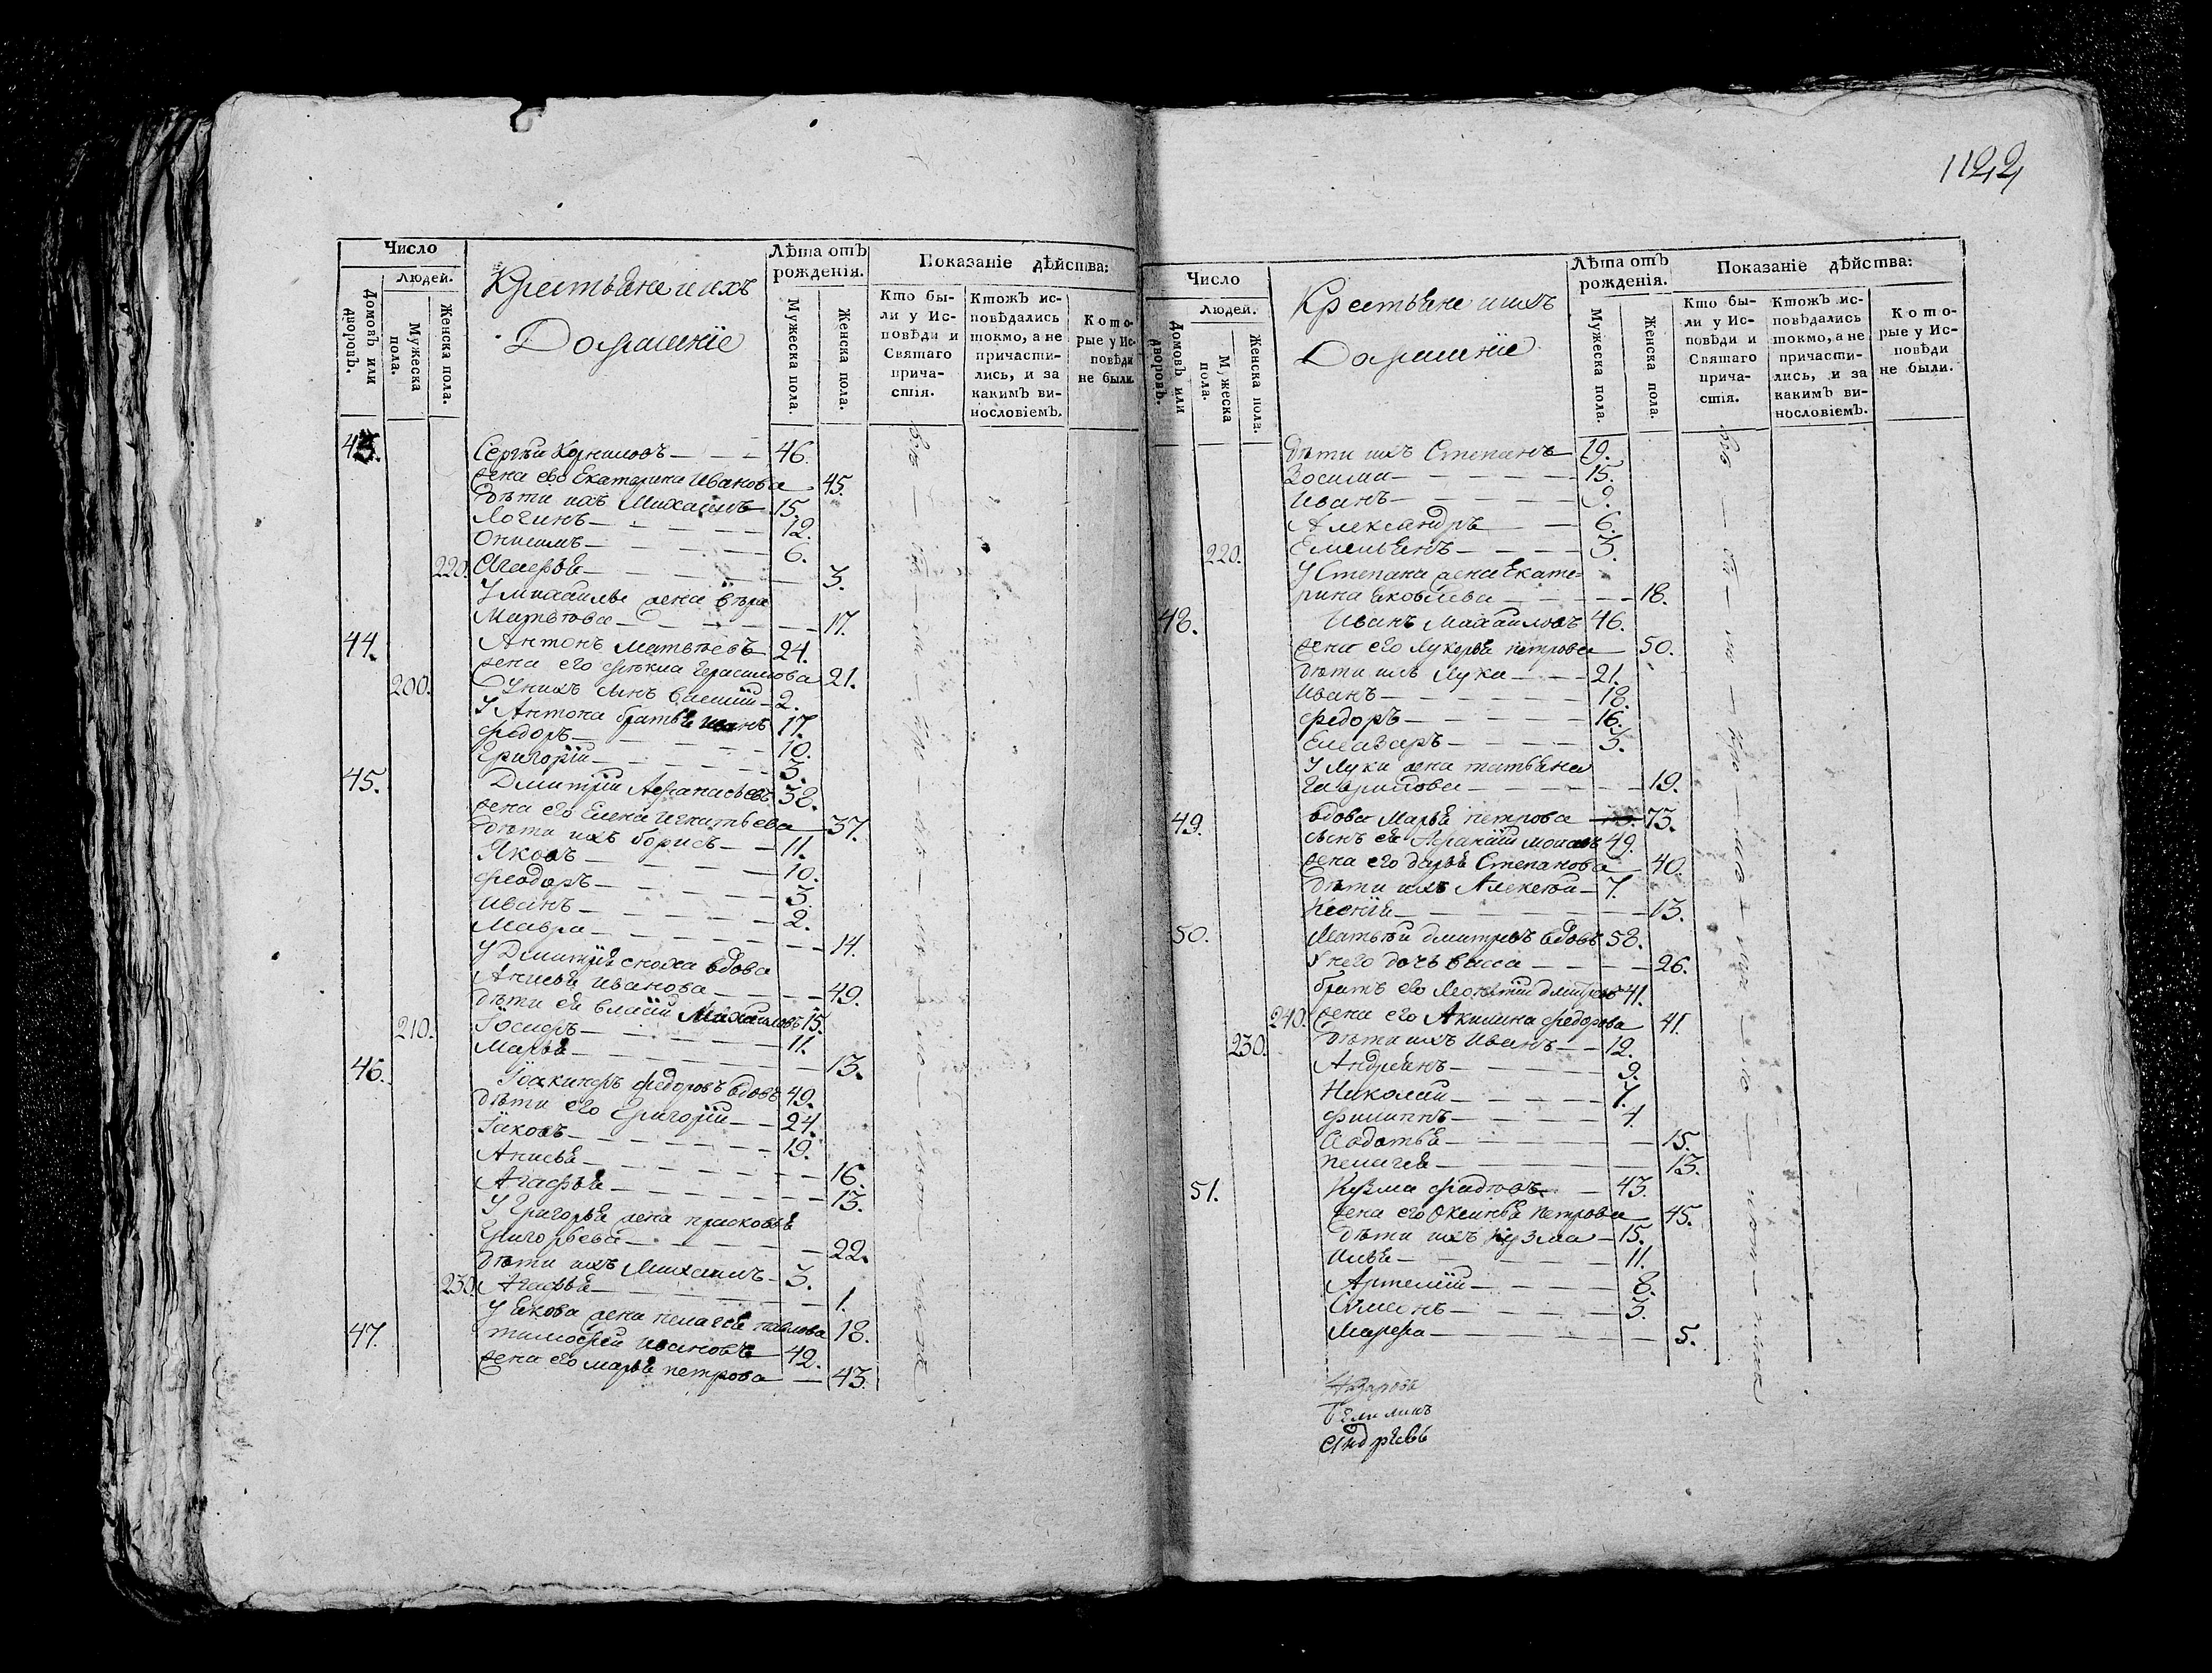 1122
Число
Людей.
Домовъ или дворовъ.
Мужеска пола.
Женска пола.
Крестьяне и ихъ
Домашніе
Лѣта отъ рожденія.
Мужеска пола.
Женска пола.
Показаніе дѣйства:
Кто были у Исповѣди и Святаго причастія.
Ктожъ исповѣдались токмо, а не причастились, и за какимъ винословіемъ.
Которые у Исповѣди не были.
43. Сергѣй Корниловъ 46.
жена его Екатерина Иванова 45.
дѣти ихъ Михаилъ 15.
Логинъ 12.
Онисимъ 6.
220. Агафья 3.
У Михаилы жена Вѣра
Матвѣева 17.
44. Антонъ Матвѣевъ 24.
жена его Ѳекла Герасимова 21.
200. У нихъ сынъ Василій 2.
У Антона братья Иванъ 17.
Федоръ 10.
Григорій 3.
45. Дмитрій Афанасьевъ 38.
жена его Елена Игнатьева 37.
дѣти ихъ Борисъ 11.
Яковъ 10.
Феодоръ 3.
Иванъ 2.
Мавра 14.
У Дмитрія сноха вдова
Анисья Иванова 49.
дѣти ея Власій Михаиловъ 15.
210. Іосифъ 11.
Марья 13.
46. Іоакинфъ Федоровъ вдовъ 49.
дѣти его Григорій 24.
Іаковъ 19.
Анисья 16.
Агафья 13.
У Григорья жена Прасковья
Григорьева 22.
дѣти ихъ Михаилъ 3.
230. Агафья 1.
У Якова жена Пелагея Павлова 18.
47. Тимофей Ивановъ 42.
жена его Марья Петрова 43.
Число
Людей.
Домовъ или дворовъ.
Мужеска пола.
Женска пола.
Крестьяне и ихъ
Домашніе
Лѣта отъ рожденія.
Мужеска пола.
Женска пола.
Показаніе дѣйства:
Кто были у Исповѣди и Святаго причастія.
Ктожъ исповѣдались токмо, а не причастились, и за какимъ винословіемъ.
Которые у Исповѣди не были.
дѣти ихъ Степанъ 19.
Зосима 15.
Иванъ 9.
Александръ 6.
220. Емельянъ 3.
У Степана жена Екате-
рина Яковлева 18.
48. Иванъ Михаиловъ 46.
жена его Лукерья Петрова 50.
дѣти ихъ Лука 21.
Иванъ 18.
Федоръ 16.
Елеазаръ 3.
У Луки жена Татьяна
Гаврилова 19.
49. вдова Марья Петрова 73.
сынъ ея Афанасій 49.
жена его Дарья Степанова 40.
дѣти ихъ Алексѣй 7.
Ксенія 13.
50. Матвѣй Дмитревъ вдовъ 58.
У него дочь Васса 26.
братъ его Леонтій Дмитревъ 41.
240. жена его Акилина Федорова 41.
230. дѣти ихъ Иванъ 12.
Андреянъ 9.
Николай 7.
Филиппъ 4.
Авдотья 15.
Пелагея 13.
51. Кузма 43.
жена его Оксинья Петрова 45.
дѣти ихъ Кузма 15.
Илья 11.
Артемій 8.
Симеонъ 3.
Марфа 5.
Андрѣевъ